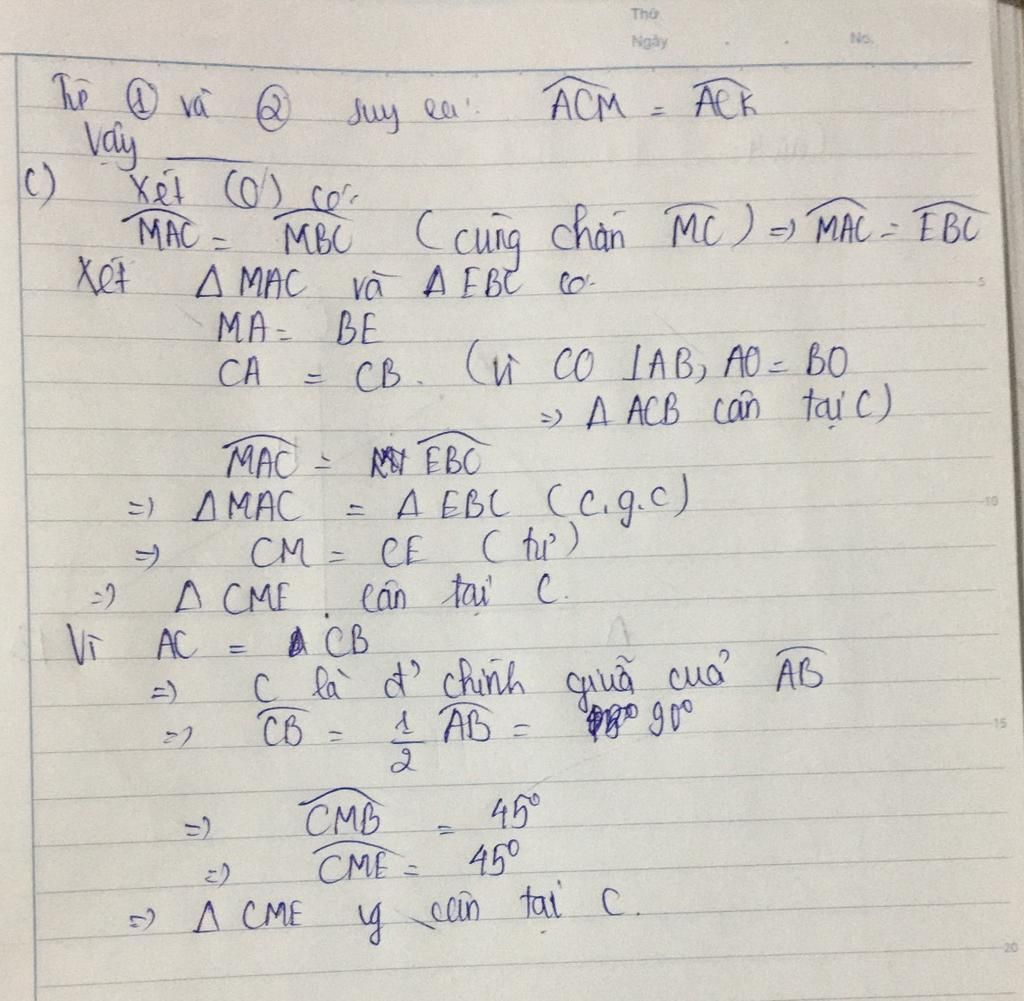 Thứ
Ngày . . No.
Từ ① và ② suy ra: ACM = ACK
Vậy
c) Xét (O) có:
MAC = MBC (cùng chắn MC) => MAC = EBC
Xét Δ MAC và Δ EBC có:
MA = BE
CA = CB. (vì CO ⊥ AB, AO = BO
=> Δ ACB cân tại C)
MAC = EBC
=> Δ MAC = Δ EBC (c.g.c)
=> CM = CE (tư)
=> Δ CME cân tại C.
Vì AC = CB
=> C là đ' chính giữa cuả AB
=> CB = 1/2 AB = 90°
=> CMB = 45°
=> CME = 45°
=> Δ CME vg cân tại C.
5
10
15
20